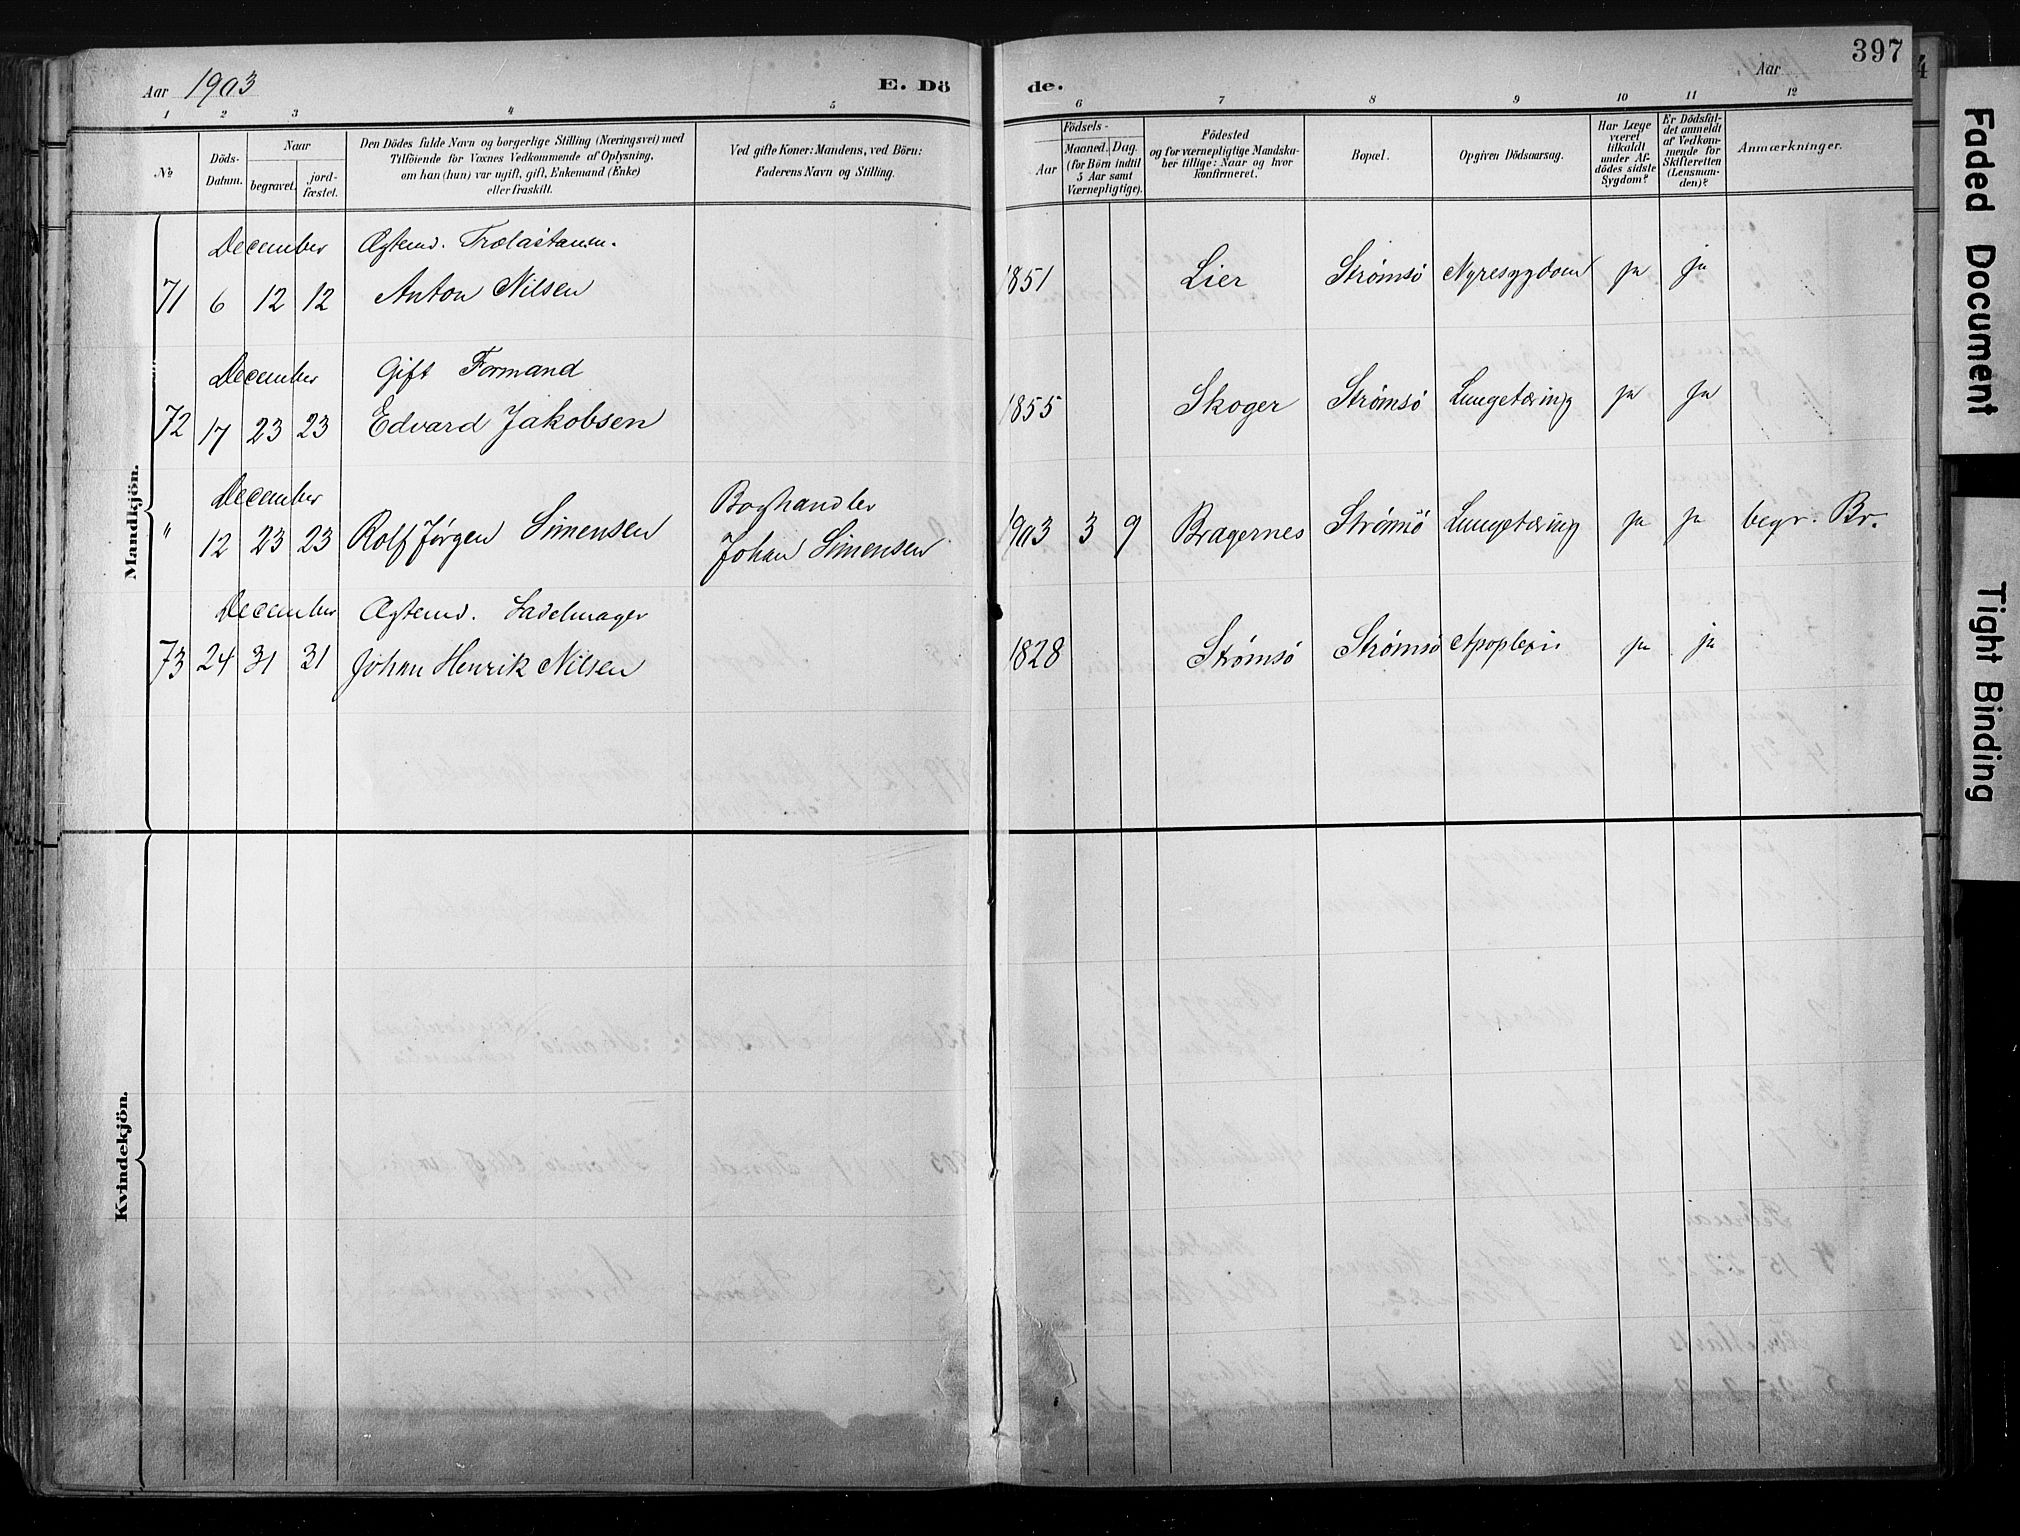 397
Aar 1903
E. Dö
de.
Aar
1 2 3 4 5 6 7 8 9 10 11 12
№
Döds-
Datum.
Naar
begravet.
jord-
fæstet.
Den Dödes fulde Navn og borgerlige Stilling (Næringsvei) med
Tilföiende for Voxnes Vedkommende af Oplysning,
om han (hun) var ugift, gift, Enkemand (Enke)
eller fraskilt.
Ved gifte Koner: Mandens, ved Börn:
Faderens Navn og Stilling.
Födsels-
Aar
Maaned. Dag.
(for Börn indtil
5 Aar samt
Værnepligtige).
Födested
og for værnepligtige Mandska-
ber tillige: Naar og hvor
konfirmeret.
Bopæl.
Opgiven Dödsaarsag.
Har Læge
været
tilkaldt
under Af-
dödes sidste
Sygdom?
Er Dödsfal-
det anmeldt
af Vedkom-
mende for
Skifteretten
(Lensman-
den)?
Anmærkninger.
Mandkjön.
December Ægtemd. Trælastarb.
71 6 12 12 Anton Nilsen 1851 Lier Strømsø Nyresygdom ja ja
December Gift Formand
72 17 23 23 Edvard Jakobsen 1855 Skoger Strømsø Lungetæring ja ja
December Boghandler
" 12 23 23 Rolf Jørgen Simensen Johan Simensen 1903 3 9 Bragernes Strømsø Lungetæring ja ja begr. Br.
December Ægtemd. Sadelmager
73 24 31 31 Johan Henrik Nilsen 1828 Strømsø Strømsø Apoplexi ja ja
Kvindekjön.
4
Faded Document
Tight Binding